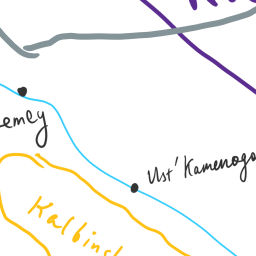 emey
Ust' Kamenogo
Kalbinsk